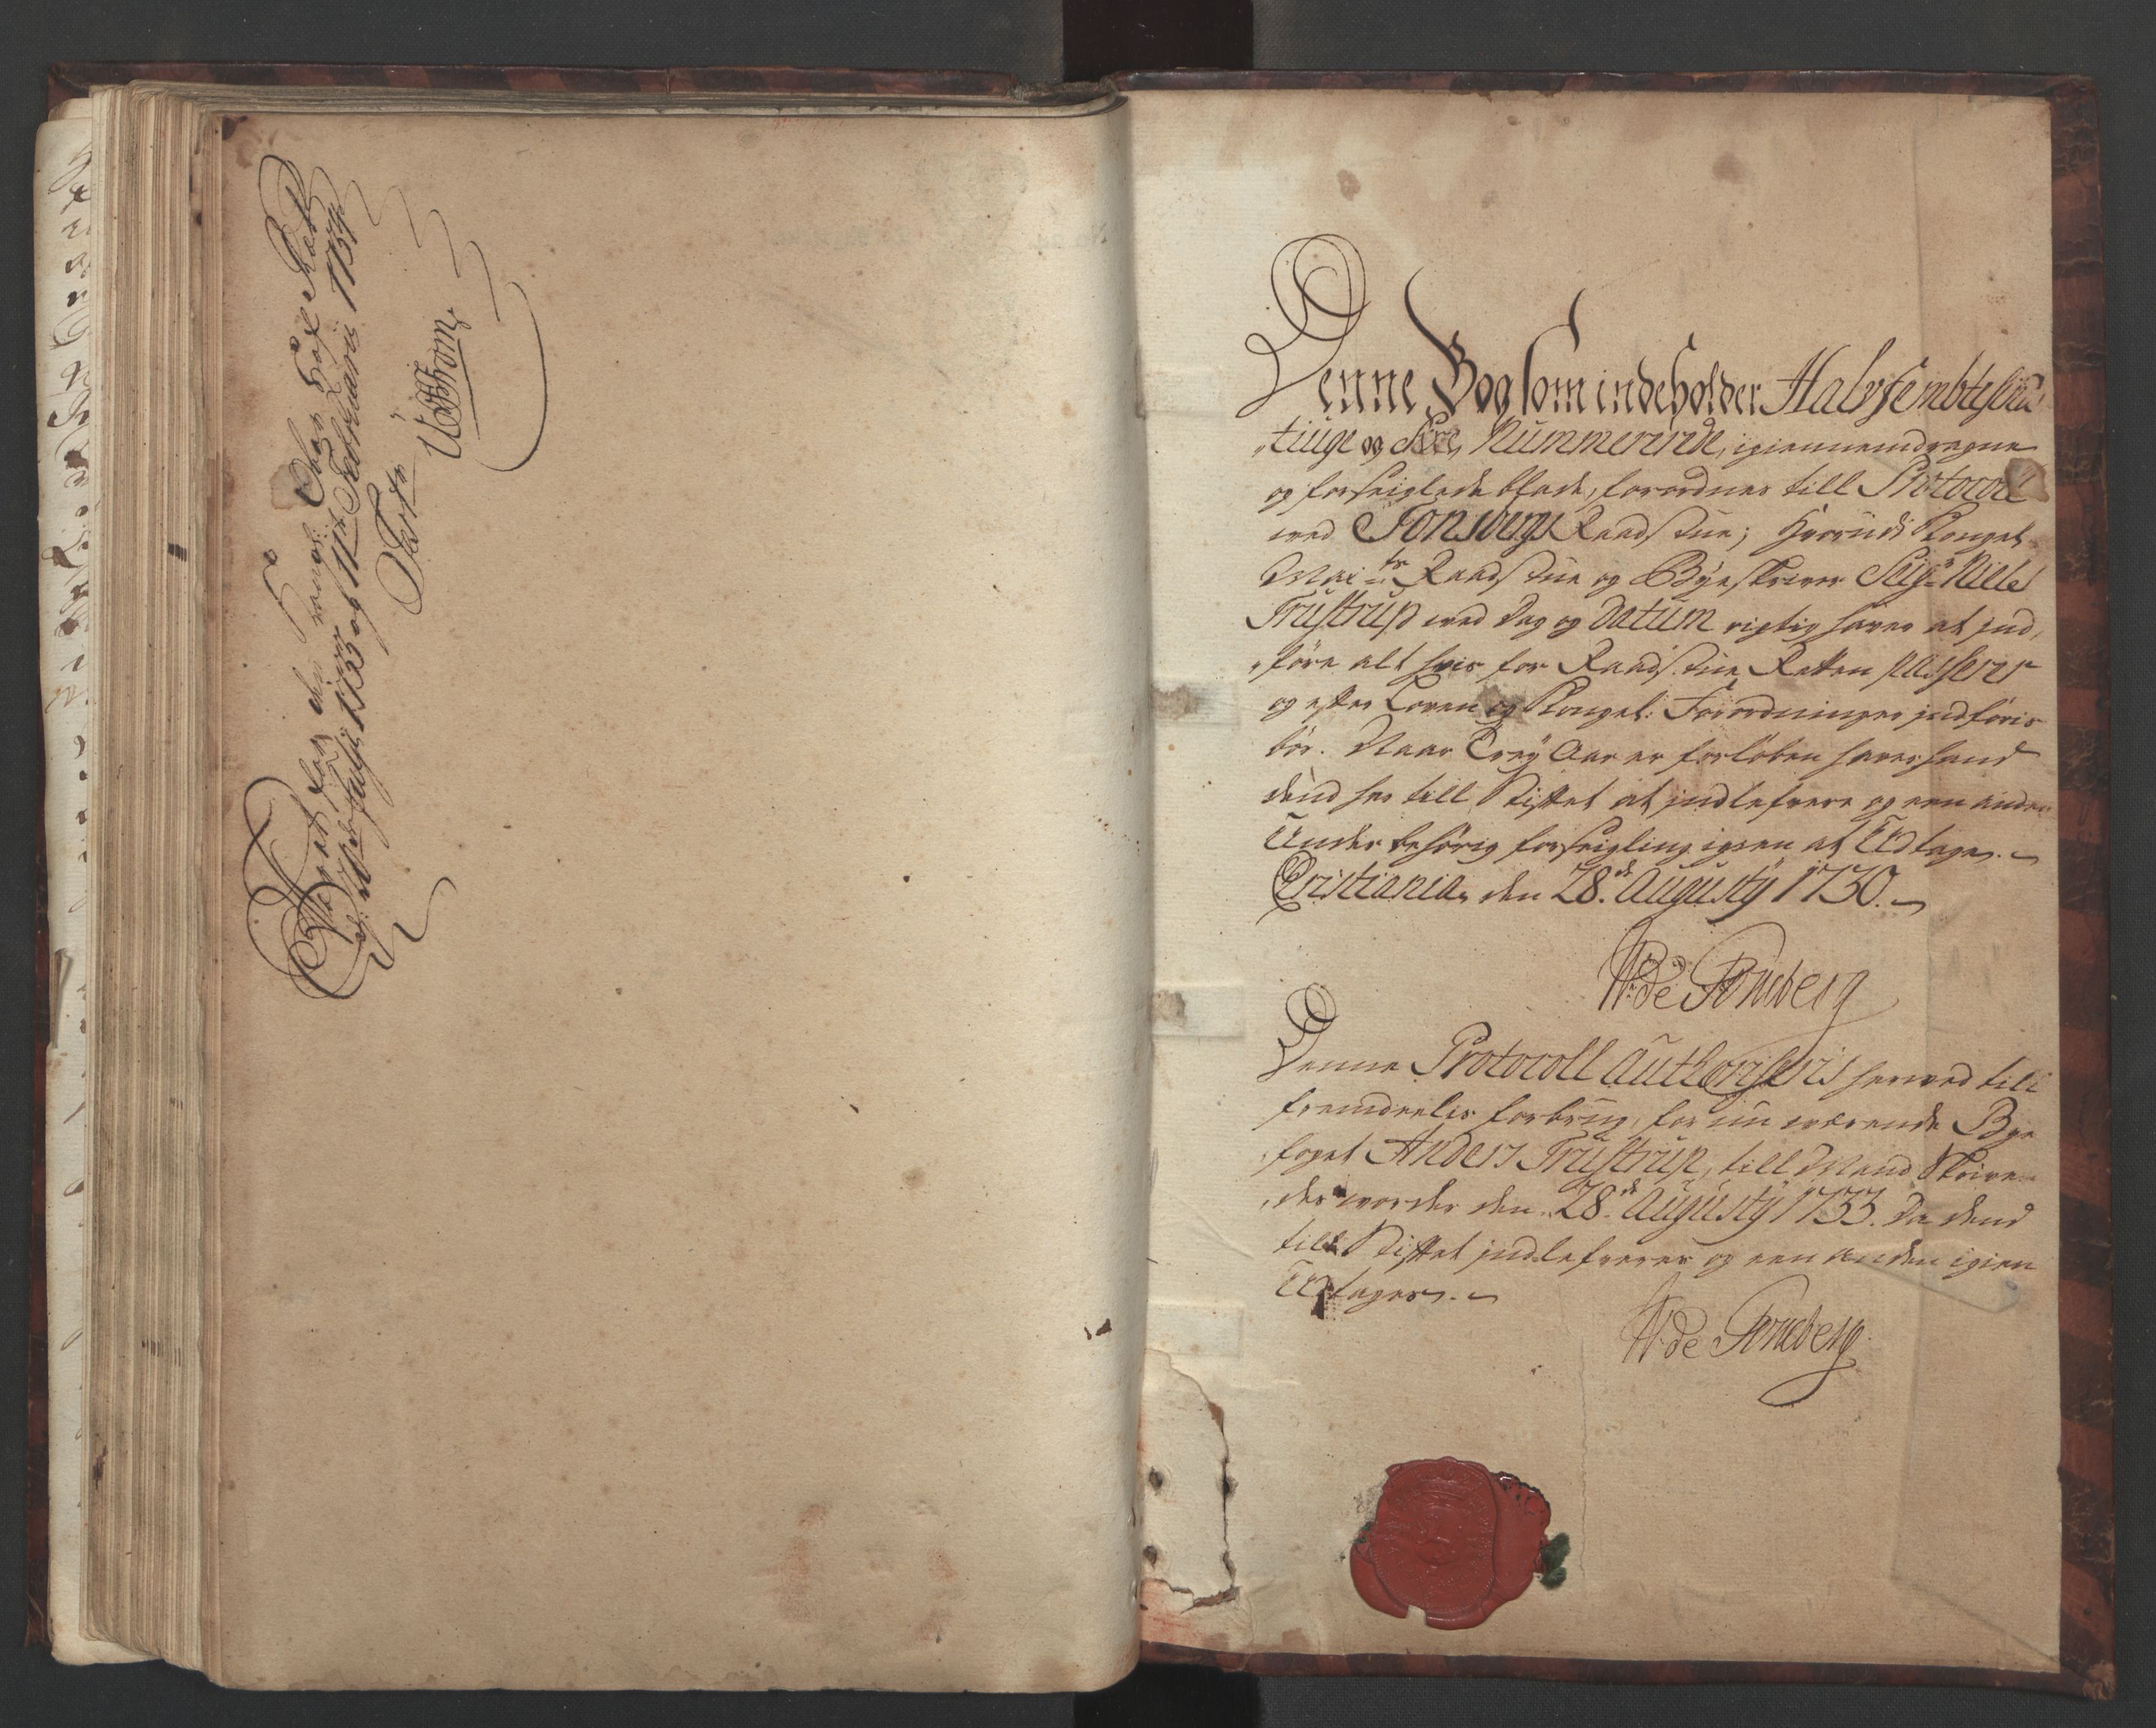 Været for den norske Over Hof Ræt
og
1753 og 11te Februarii 1754
Testr
Denne Bog som indeholder Halvfembtesinds
tiuge og Fire Nummererede, igiennemdragne
og forseiglede blade, forordnes till Protocoll
ved Tonsbergs Raadstue; Hvorudi Kongel.
Mai:ts Raadstue og Bÿeskriver Sigr Niels
Trustrup med Dag og Datum rigtig haver at ind,
føre alt hvis for Raadstue Retten passerer
og efter Loven og Kongel: Forordninger indføris
bør. Naar Treÿ Aar er forløben haver hand
dend her till Stiftet at indlefvere og een anden
Under behørig forseigling igien at Udtage.
Cristiania, den 28de Augustÿ 1730.
W: de Tonsberg
Denne Protocoll Authoriseris herved till
fremdeelis forbrug, for nu værende Bÿe
foget Anders Trustrup, till Mand Skriver
der vorder den 28de Augustÿ 1733. Da dend
till Stiftet indlefveres og een anden igien
Udtages.
W: de Tonsberg